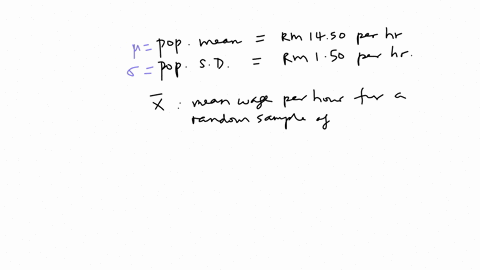 μ = pop. mean = RM 14.50 per hr
σ = pop. S.D. = RM 1.50 per hr.
X̄ : mean wage per hour for a
random sample of